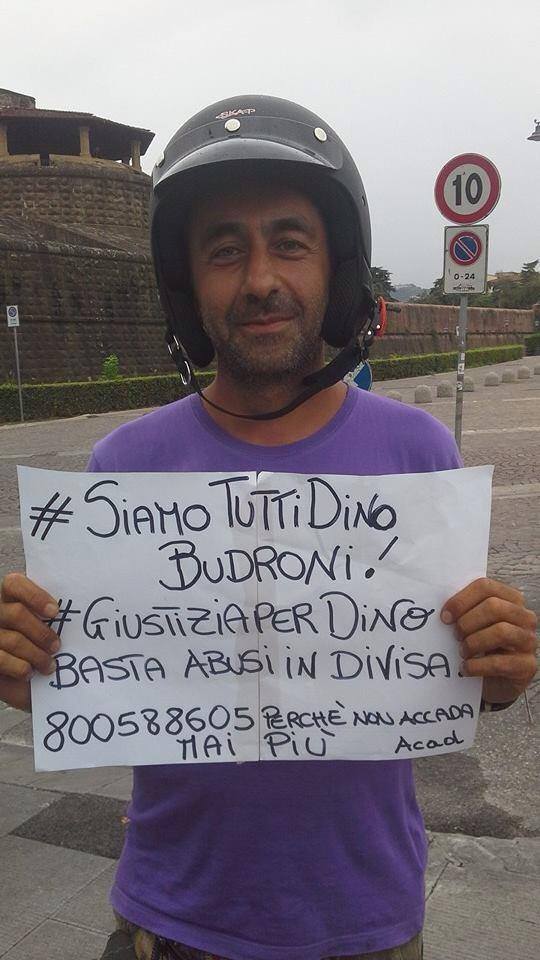 SKAP
10
0-24
#SIAMO TUTTI DINO
BUDRONI!
#GIUSTIZIA PER DINO
BASTA ABUSI IN DIVISA!
800588605 PERCHÈ NON ACCADA
MAI PIÙ Acad